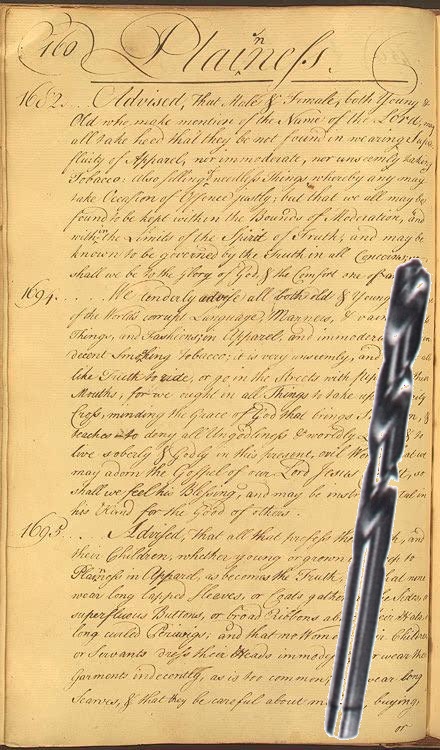 160
Plainness.
1682... Advised, That Male & Female, both Young &
Old who make mention of the Name of the Lord, may
all take heed that they be not found in wearing Supr
fluity of Apparel, nor immoderate, nor unseemly taking
Tobacco: Also selling needless Things whereby any may
take Occasion of Offence justly; but that we all may be
found to be kept within the Bounds of Moderation, and
within the Limits of the Spirit of Truth; and may be
known to be governed by the Truth in all Concerns;
shall we be to the Glory of God, & the Comfort one of
1694..... We tenderly advise all both old & Young
of the World's corrupt Language, Manners, & vain
Things, and Fashions, in Apparel, and immoder
decent Smoking Tobacco; it is very unseemly, and
like Truth to ride, or go in the Streets with
Mouths, for we ought in all Things to take up
Cross, minding the Grace of God that brings
teaches to deny all Ungodliness & worldly & to
live soberly & Godly in this present, evil
may adorn the Gospel of our Lord Jesus so
shall we feel his Blessing, and may be in his Hand for the Good of others.
1695... Advised, that all that profess the and
their Children, whether young or grown up to
Plainness in Apparel, as becomes the Truth, that none
wear long lapped Sleaves, or Coats gathered Sides,
superfluous Buttons, or broad Ribbons Hats,
long curled Periwigs, and that no Children
or Servants dress their Heads immod wear their
Garments indecently, as is too common, wear long
Scarves, & that they be careful about buying,
or